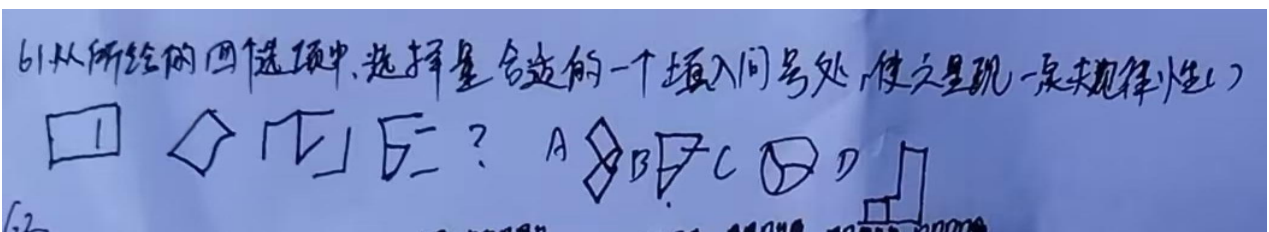 61从所给的四个选项中,选择最合适的一个填入问号处,使之呈现一定规律性()
? A B C D
62